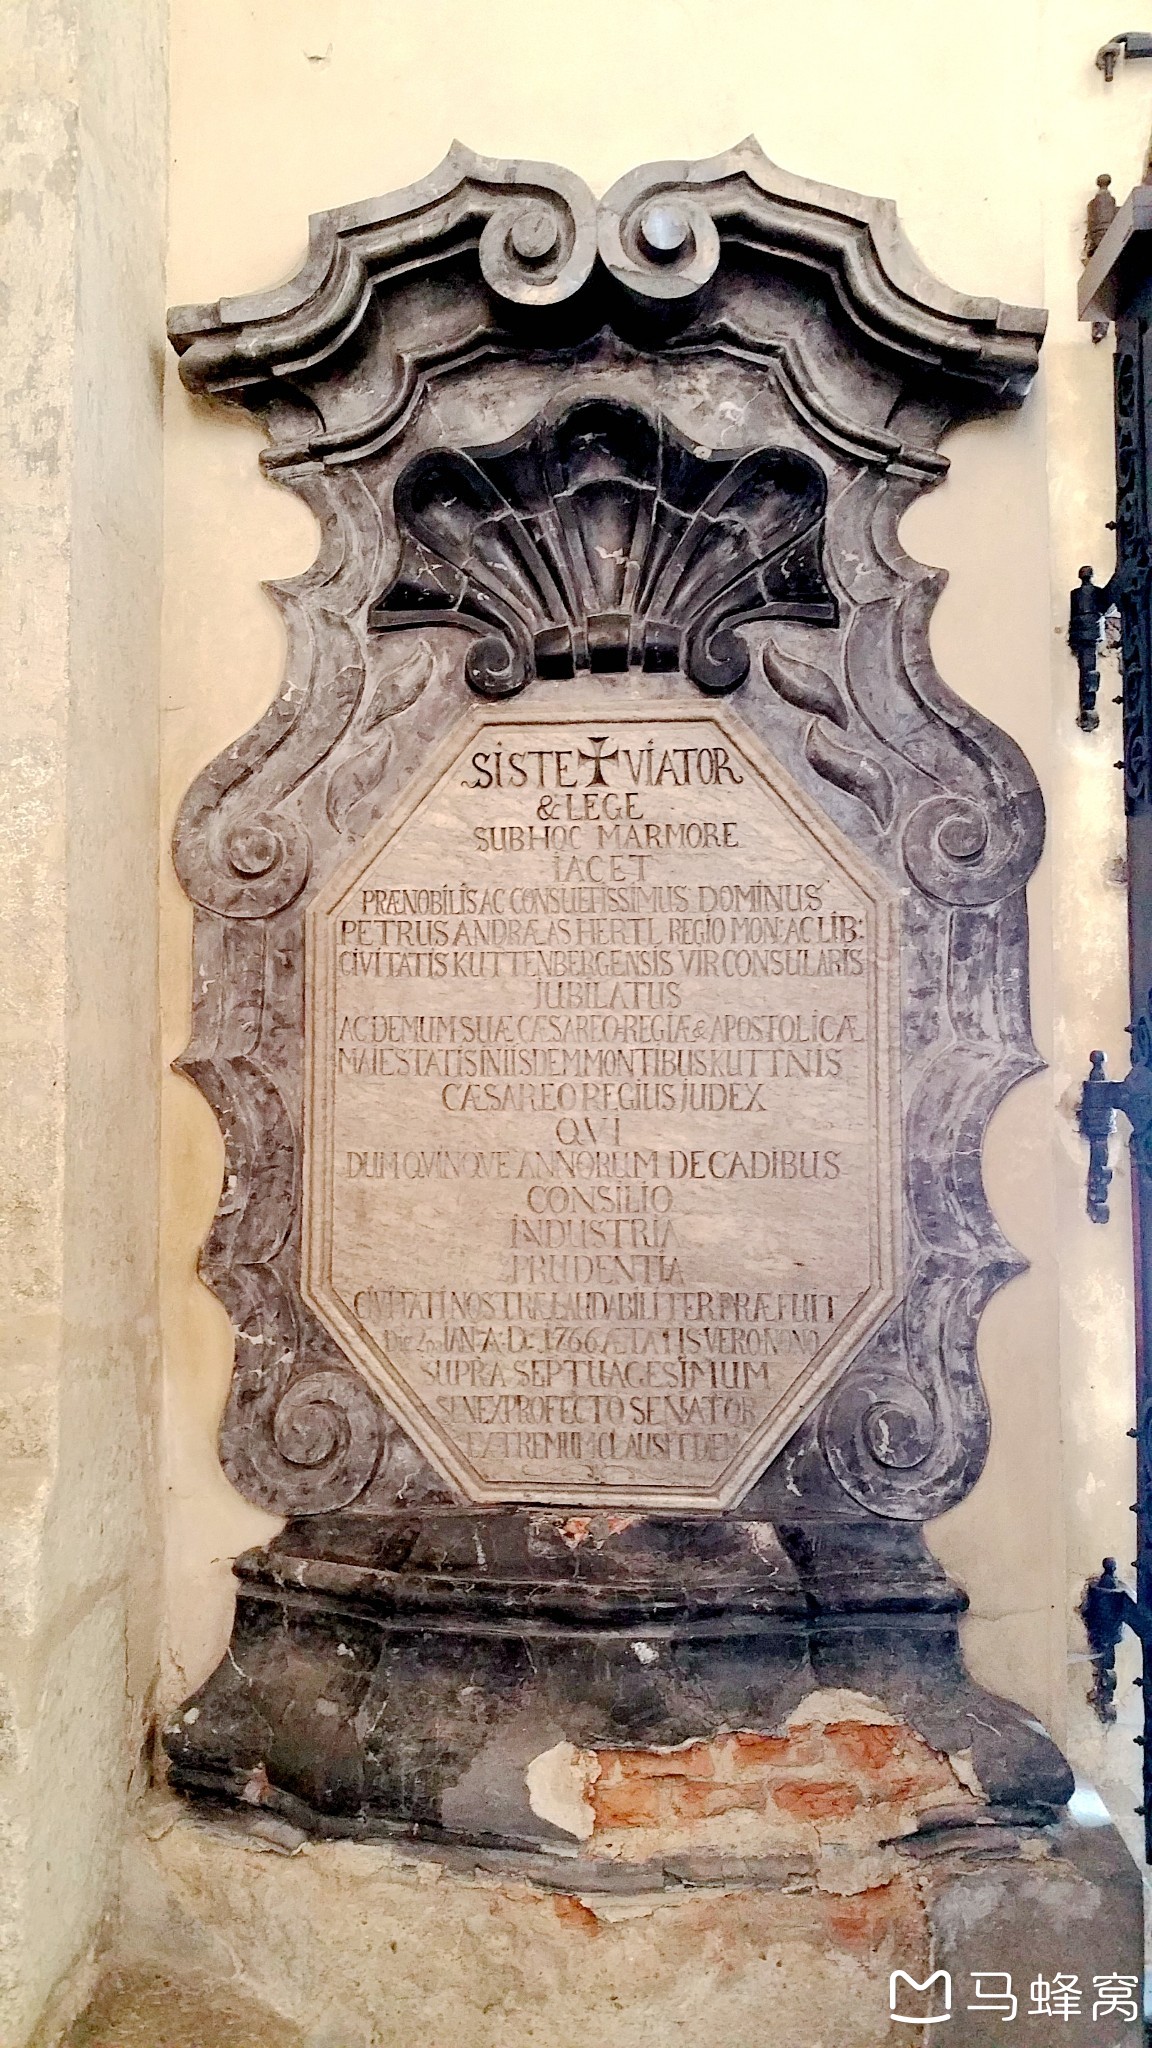 SISTE ✠ VIATOR
& LEGE
SUB HOC MARMORE
IACET
PRÆNOBILIS AC CONSULTISSIMUS DOMINUS
PETRUS ANDRÆAS HERTL REGIO MON: AC LIB:
CIVITATIS KUTTENBERGENSIS VIR CONSULARIS
JUBILATUS
AC DEMUM SUÆ CÆSAREO-REGIÆ & APOSTOLICÆ
MAIESTATIS IN IISDEM MONTIBUS KUTTNIS
CÆSAREO REGIUS JUDEX
QVI
DUM QVINQVE ANNORUM DECADIBUS
CONSILIO
INDUSTRIA
PRUDENTIA
CIVITATI NOSTRÆ LAUDABILITER PRÆFUIT
Die JAN: A: D: 1766 ÆTATIS VERO NONO
SUPRA SEPTUAGESIMUM
SENEX PROFECTO SENATOR
EXTREMUM CLAUSIT DIEM
马蜂窝